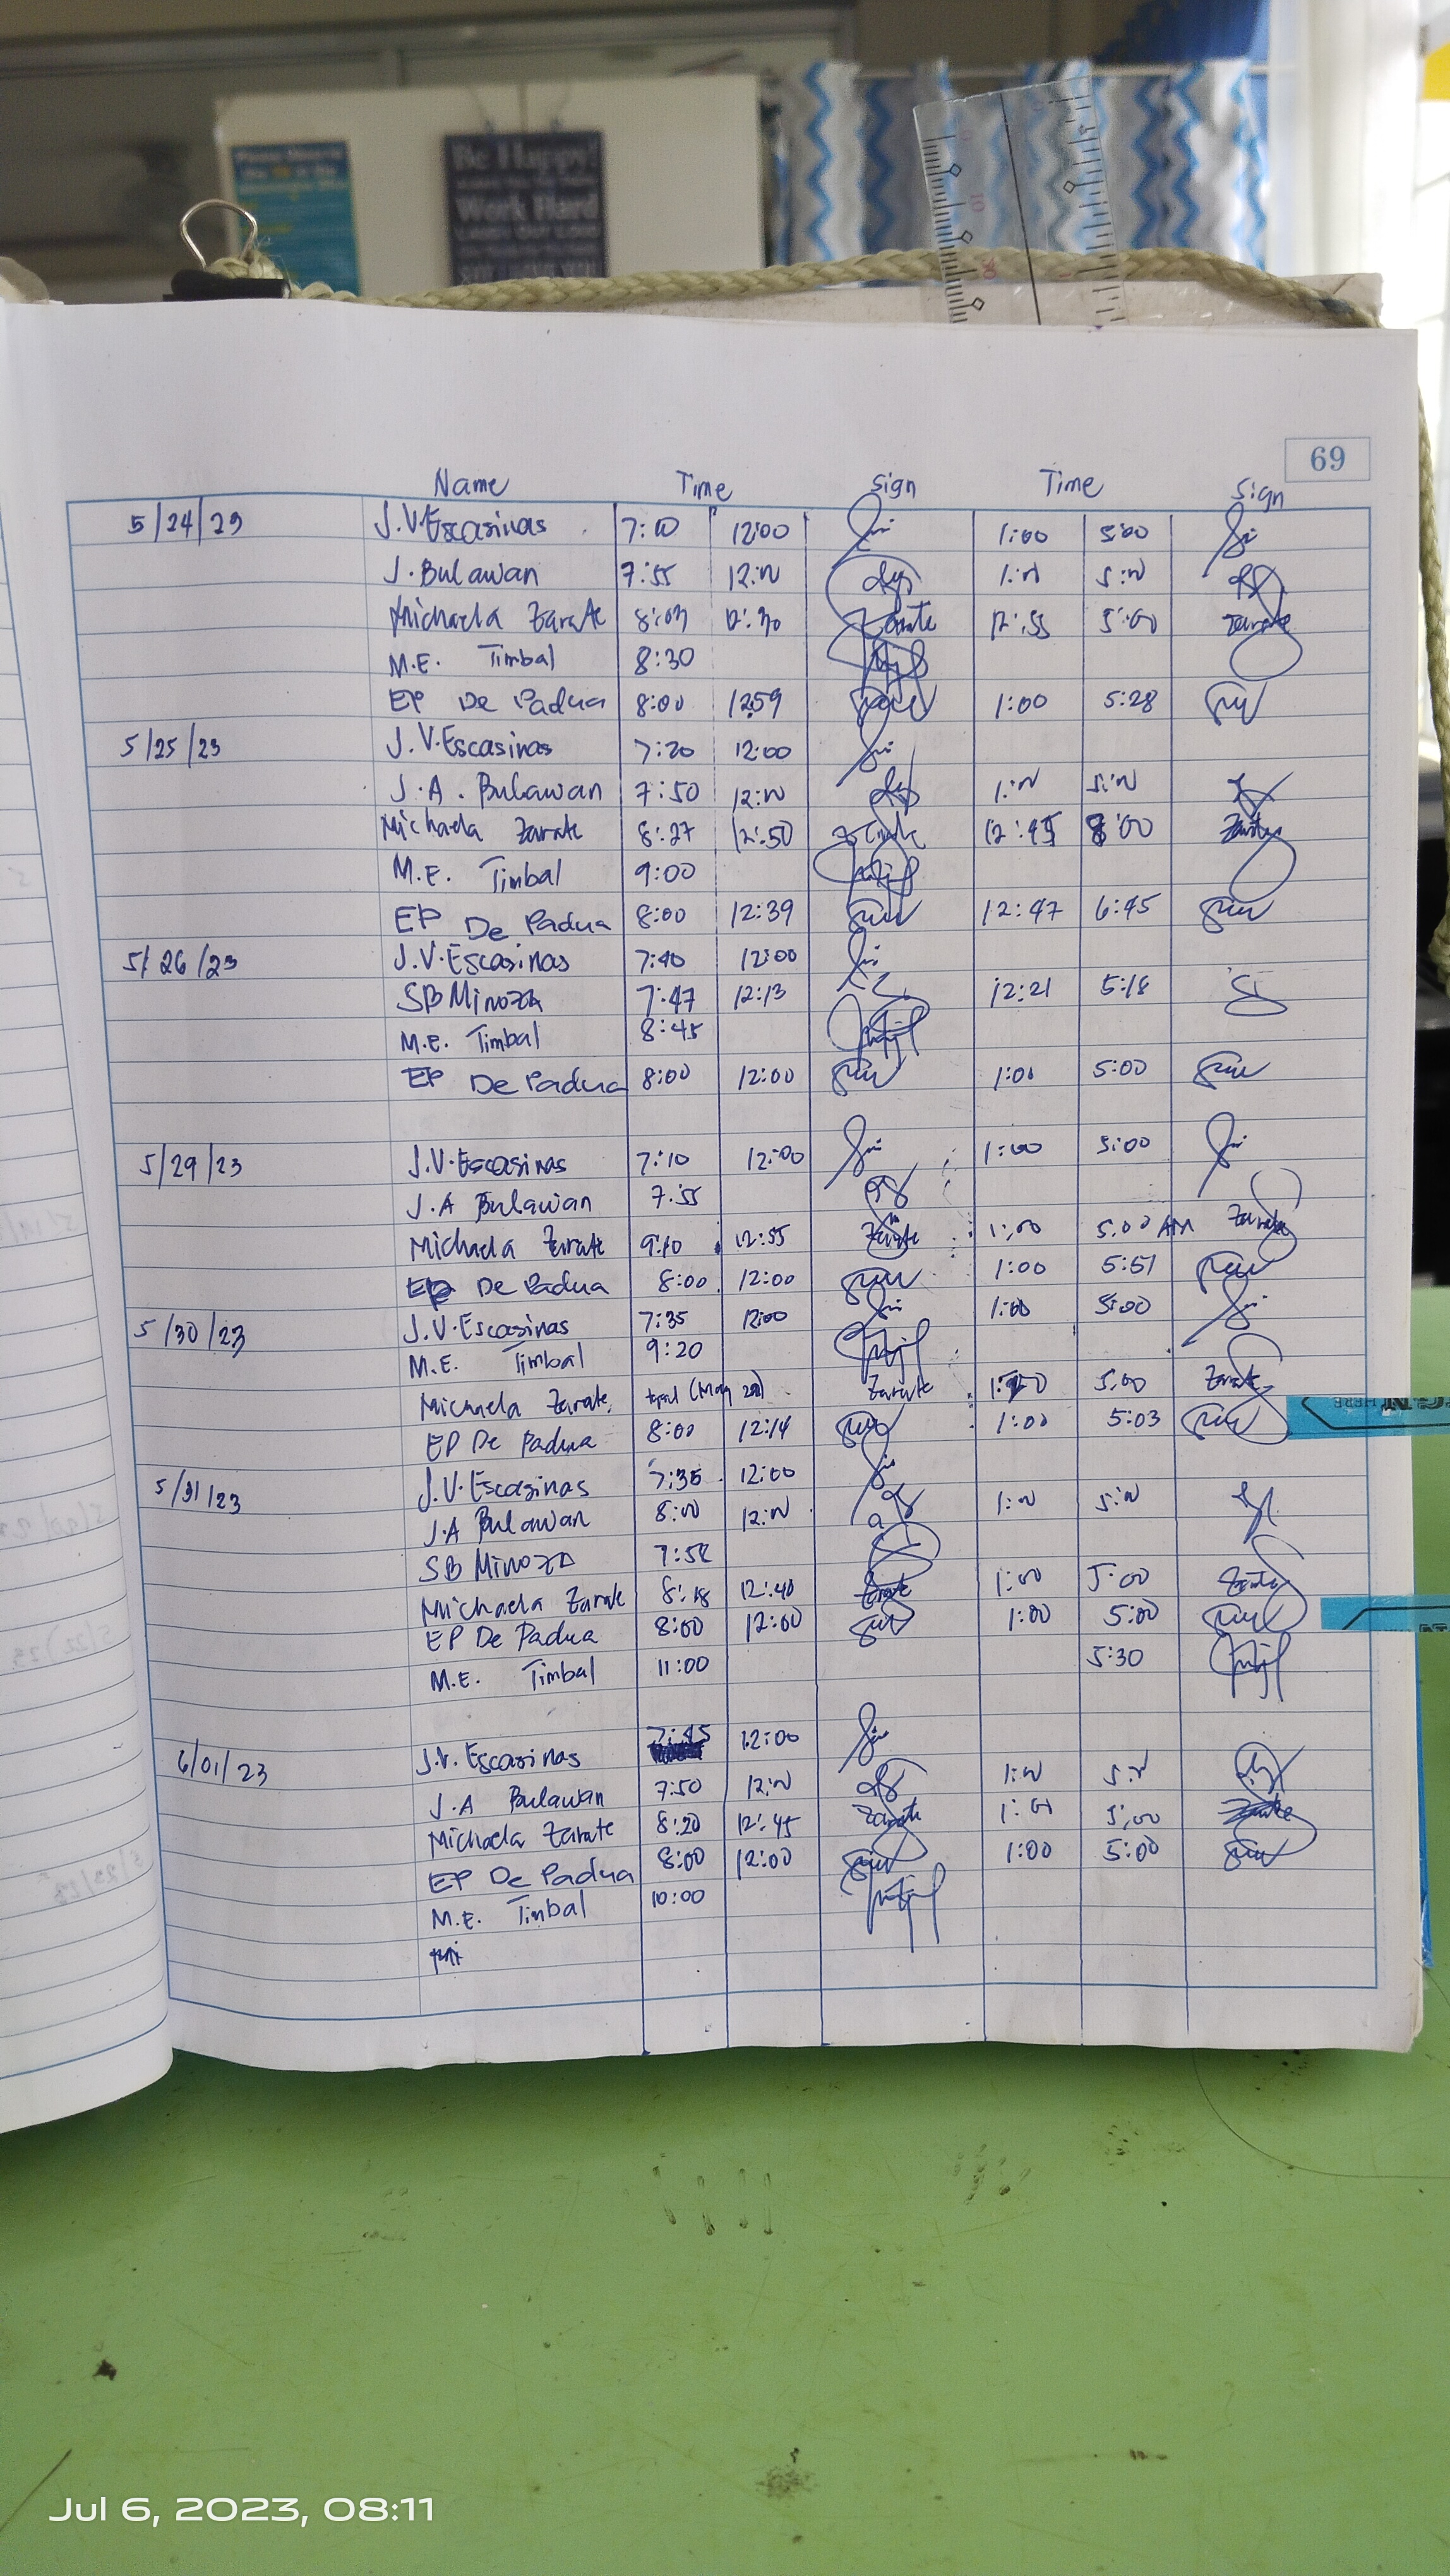 Be Happy!
Work Hard
69
Name Time Sign Time Sign
5/24/23 J.V. Escasinas 7:10 12:00 1:00 5:00
J. Bulawan 7:55 12:N 1:N 5:N
Michaela Zarate 8:03 12:30 Zarate 12:55 5:00 Zarate
M.E. Timbal 8:30
EP De Padua 8:00 12:59 1:00 5:28
5/25/23 J.V. Escasinas 7:20 12:00
J.A. Bulawan 7:50 12:N 1:N 5:N
Michaela Zarate 8:27 12:50 12:45 8:00
M.E. Timbal 9:00
EP De Padua 8:00 12:39 12:47 6:45
5/26/23 J.V. Escasinas 7:40 12:00
SB Minoza 7:47 12:13 12:21 5:18
M.E. Timbal 8:45
EP De Padua 8:00 12:00 1:00 5:00
5/29/23 J.V. Escasinas 7:10 12:00 1:00 5:00
J.A Bulawan 7:55
Michaela Zarate 9:10 12:55 Zarate 1:00 5:00 AM Zarate
EP De Padua 8:00 12:00 1:00 5:51
5/30/23 J.V. Escasinas 7:35 12:00 1:00 5:00
M.E. Timbal 9:20
Michaela Zarate Zarate 5:00 Zarate
EP De Padua 8:00 12:14 1:00 5:03
HERE
5/31/23 J.V. Escasinas 7:35 12:00
J.A Bulawan 8:00 12:N 1:N 5:N
SB Minoza
Michaela Zarate 8:18 12:40 Zarate 1:00 5:00
EP De Padua 8:00 12:00 1:00 5:00
M.E. Timbal 11:00 5:30
6/01/23 J.V. Escasinas 7:45 12:00
J.A Bulawan 7:50 12:N 1:N 5:N
Michaela Zarate 8:20 12:45 Zarate 1:01 5:00 Zarate
EP De Padua 8:00 12:00 1:00 5:00
M.E. Timbal 10:00
Jul 6, 2023, 08:11